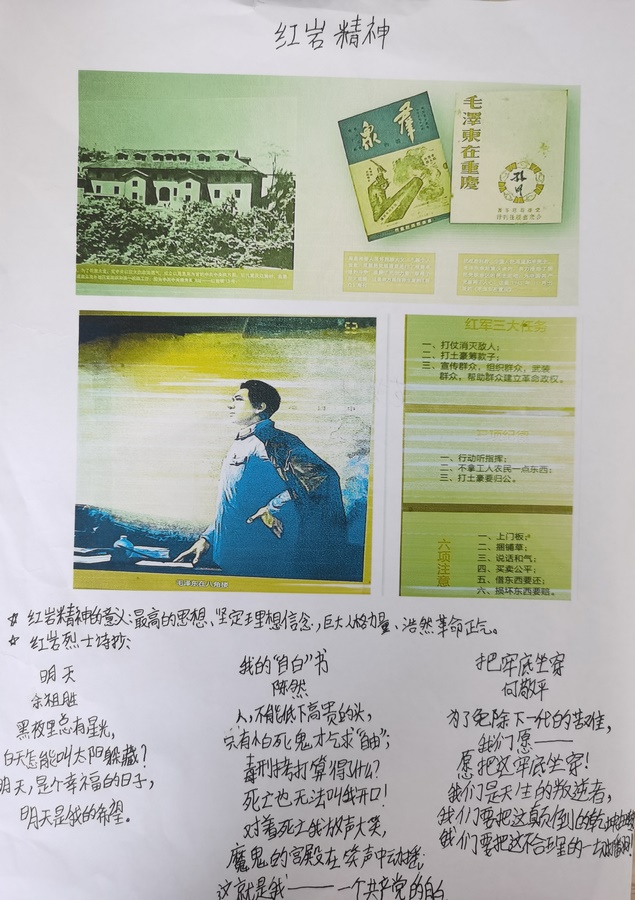 红岩精神
羣衆
毛澤東在重慶
红军三大任务
一、打仗消灭敌人;
二、打土豪筹款子;
三、宣传群众,组织群众,武装
群众,帮助群众建立革命政权。
一、行动听指挥;
二、不拿工人农民一点东西;
三、打土豪要归公。
六项注意
一、上门板;
二、捆铺草;
三、说话和气;
四、买卖公平;
五、借东西要还;
六、损坏东西要赔。
☆ 红岩精神的意义:最高的思想、坚定理想信念,巨大人格力量、浩然革命正气。
☆ 红岩烈士诗抄:
明天
余祖胜
黑夜里总有星光,
白天怎能叫太阳躲藏?
明天,是个幸福的日子,
明天是我的希望。
我的“自白”书
陈然
人,不能低下高贵的头,
只有怕死鬼才乞求“自由”;
毒刑拷打算得什么?
死亡也无法叫我开口!
对着死亡我放声大笑,
魔鬼的宫殿在笑声中动摇;
这就是我——一个共产党的自白
把牢底坐穿
何敬平
为了免除下一代的苦难,
我们愿——
愿把这牢底坐穿!
我们是天生的叛逆者,
我们要把这颠倒的乾坤扭转
我们要把这不合理的一切打翻!